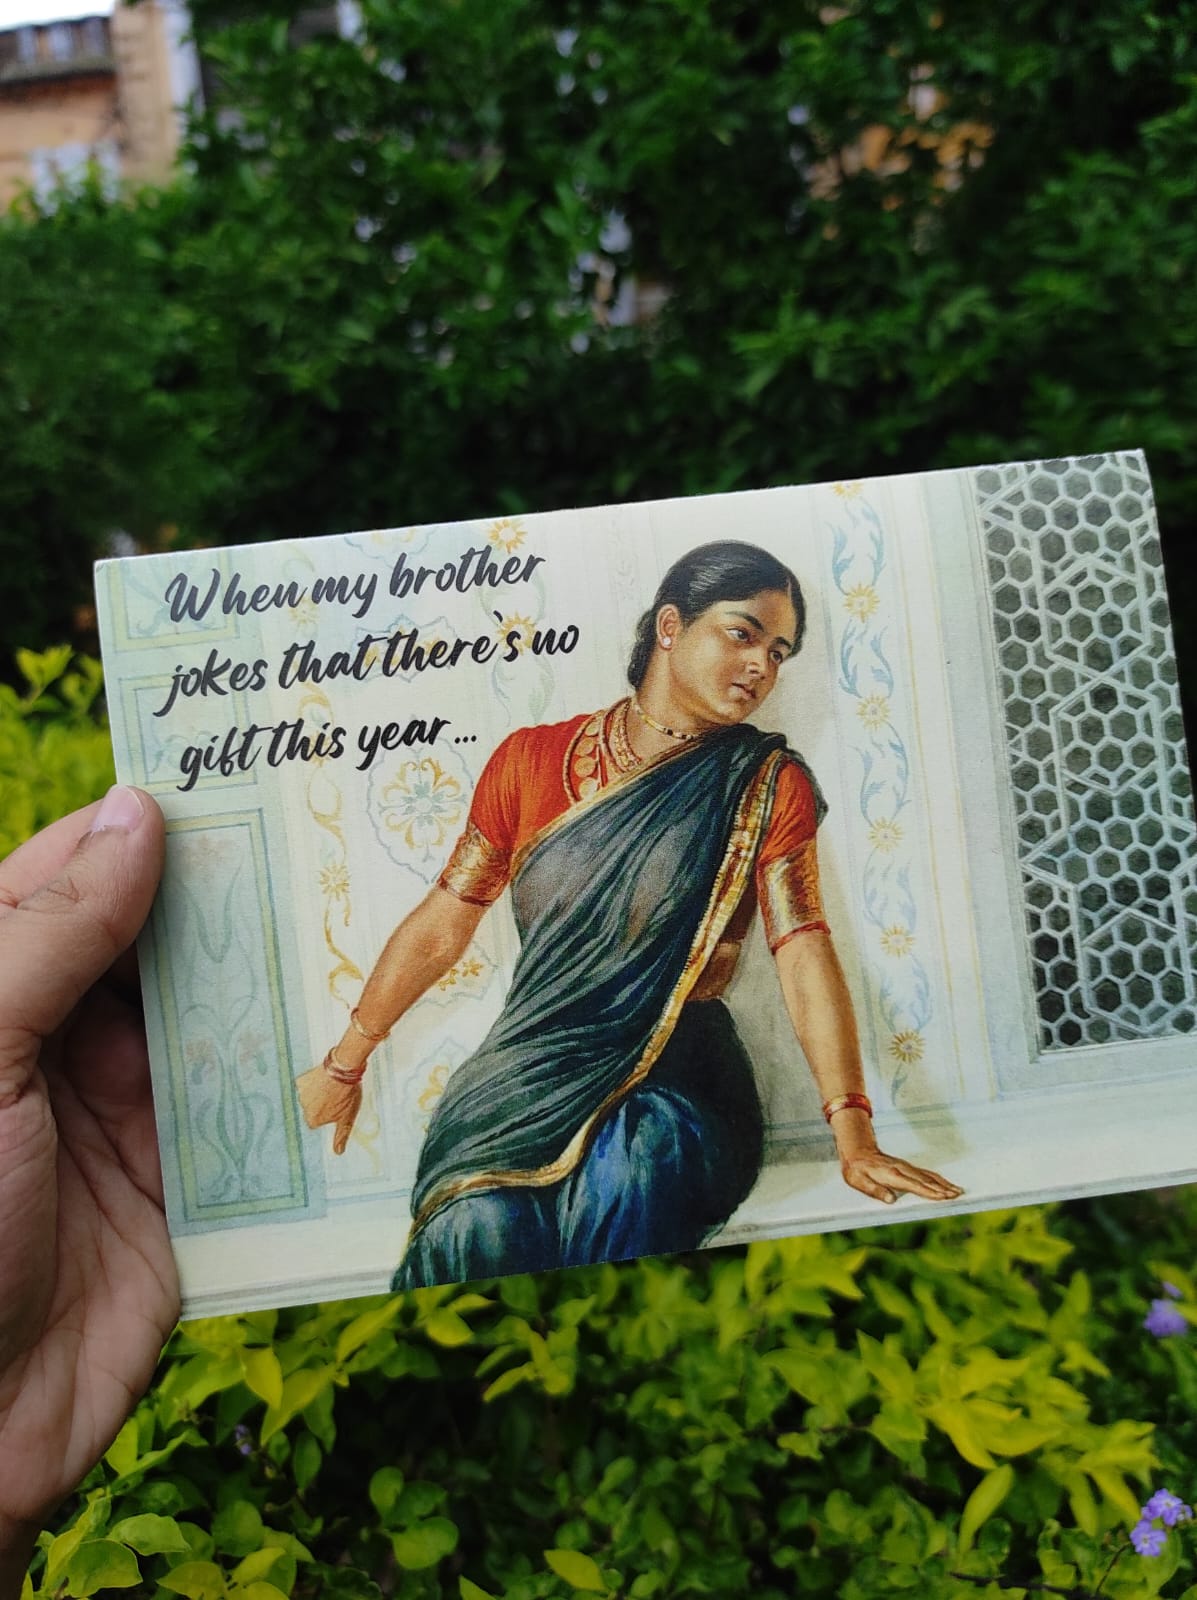 When my brother
jokes that there's no
gift this year...